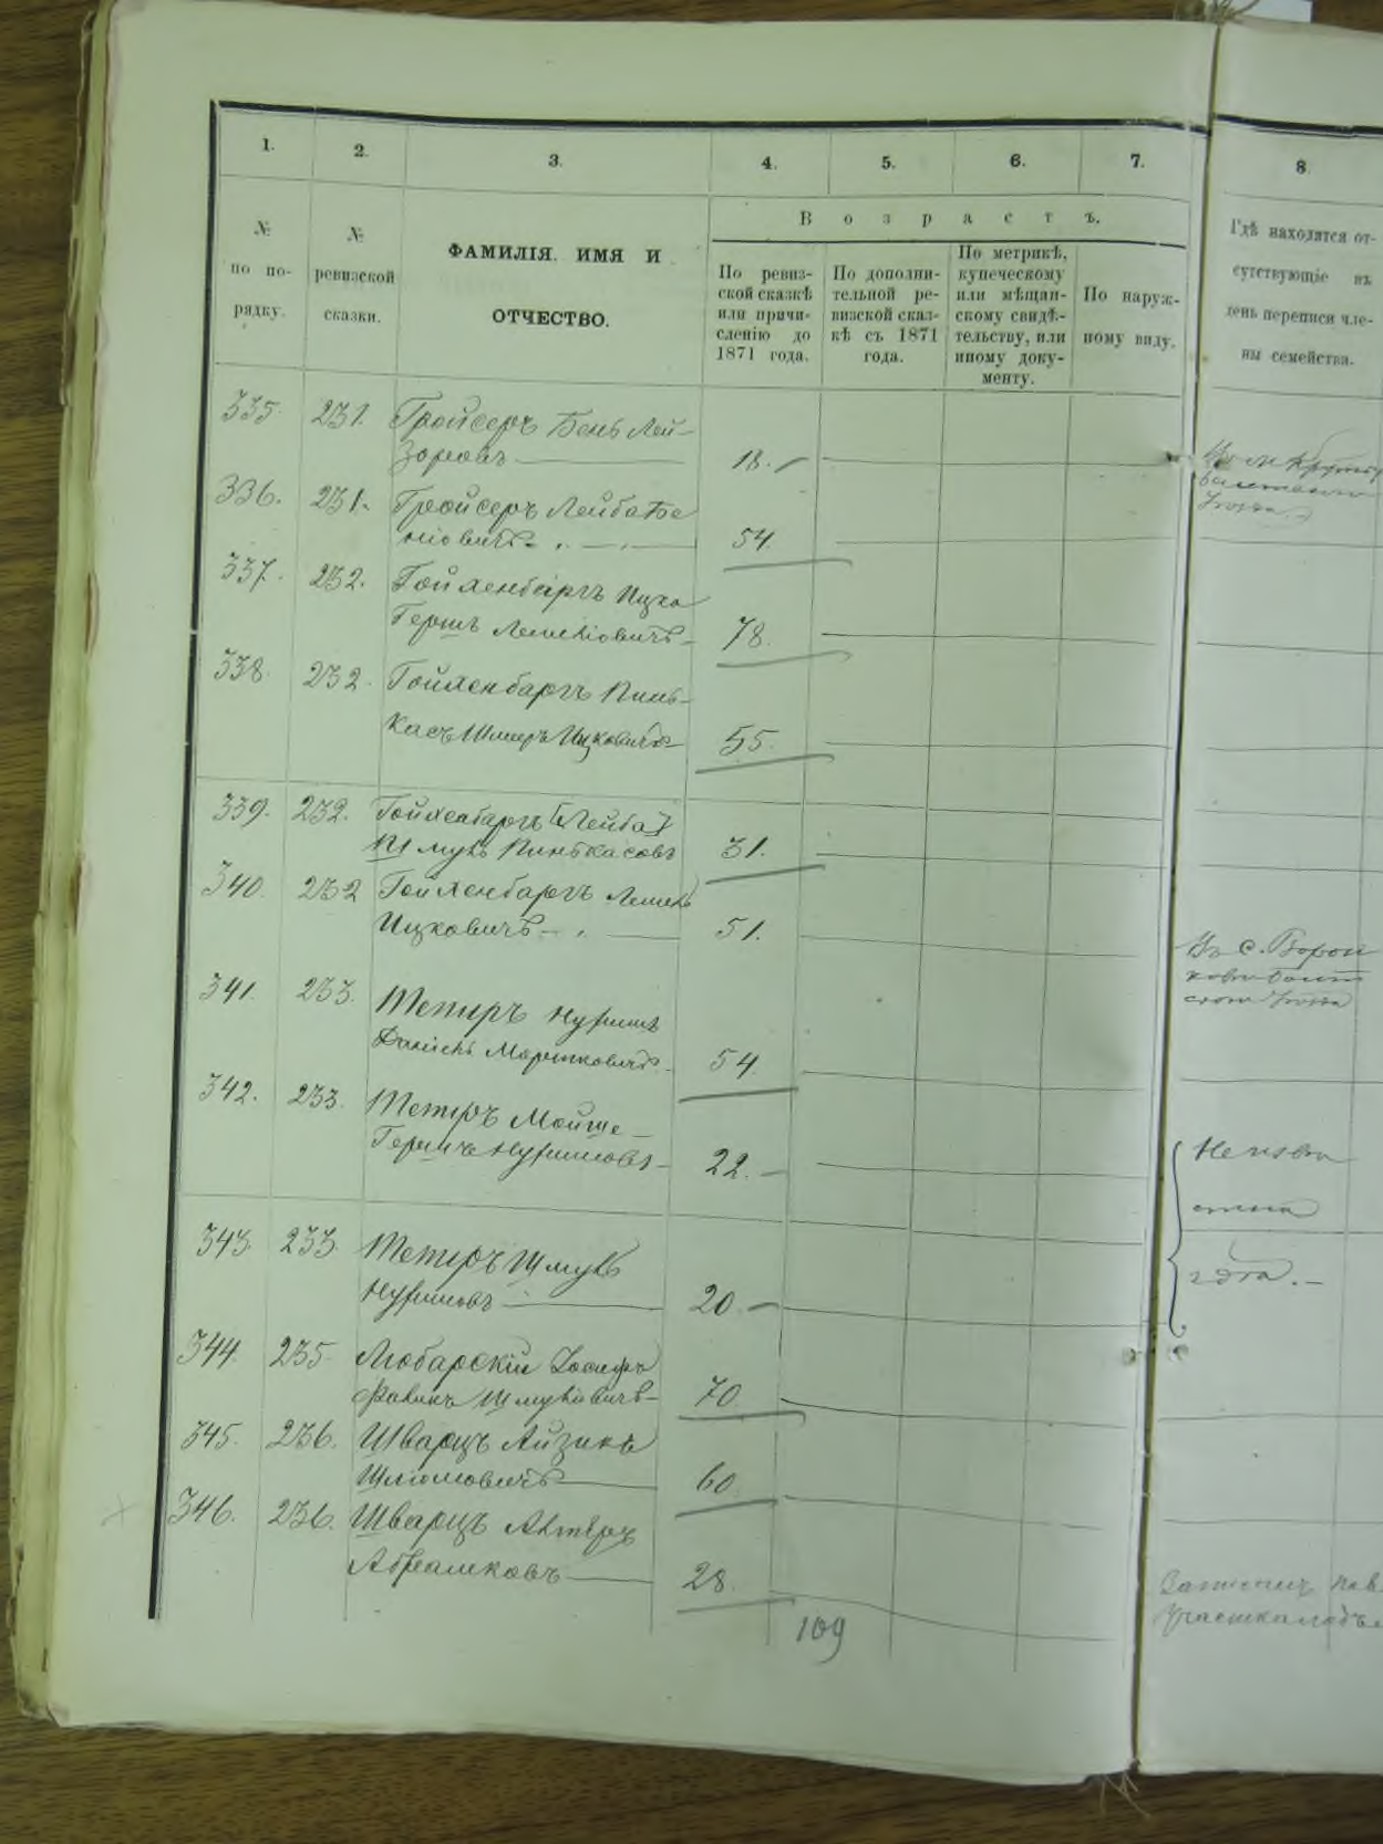 1. 2. 3. 4. 5. 6. 7. 8.
№
по по-
рядку.
№
ревизской
сказки.
ФАМИЛІЯ. ИМЯ И
ОТЧЕСТВО.
Возрастъ.
По ревиз-
ской сказкѣ
или причи-
сленію до
1871 года.
По дополни-
тельной ре-
визской сказ-
кѣ съ 1871
года.
По метрикѣ,
купеческому
или мѣщан-
скому свидѣ-
тельству, или
иному доку-
менту.
По наруж-
ному виду.
Гдѣ находятся от-
сутствующіе въ
день переписи чле-
ны семейства.
335. 231. Гройсеръ Бень Лей-
зоровъ 18.
336. 231. Гройсеръ Лейба Бе
ніовичъ 54.
337. 232. Гойхенбаргъ Ицко
Гершъ Лемеліовичъ 78.
338. 232. Гойхенбаргъ Пинь-
касъ Шмеръ Ицковичъ 55.
339. 232. Гойхенбаргъ [Лейба]
Шмуль Пинькасовъ 31.
340. 232 Гойхенбаргъ
Ицковичъ 51.
Въ с. Ворон
341. 233. Тетиръ Нухимъ
Мортковичъ 54.
342. 233. Тетиръ Мойше-
Гершъ Нухимовъ 22.
Неизвѣ
стно
гдѣ.
343. 233. Тетиръ Шмуль
Нухимовъ 20.
344. 235. Любарскій Іосифъ
Фавикъ Шмуліовичъ 70.
345. 236. Шварцъ Айзикъ
Шліомовичъ 60.
346. 236. Шварцъ Алтеръ
Абрамковъ 28.
109